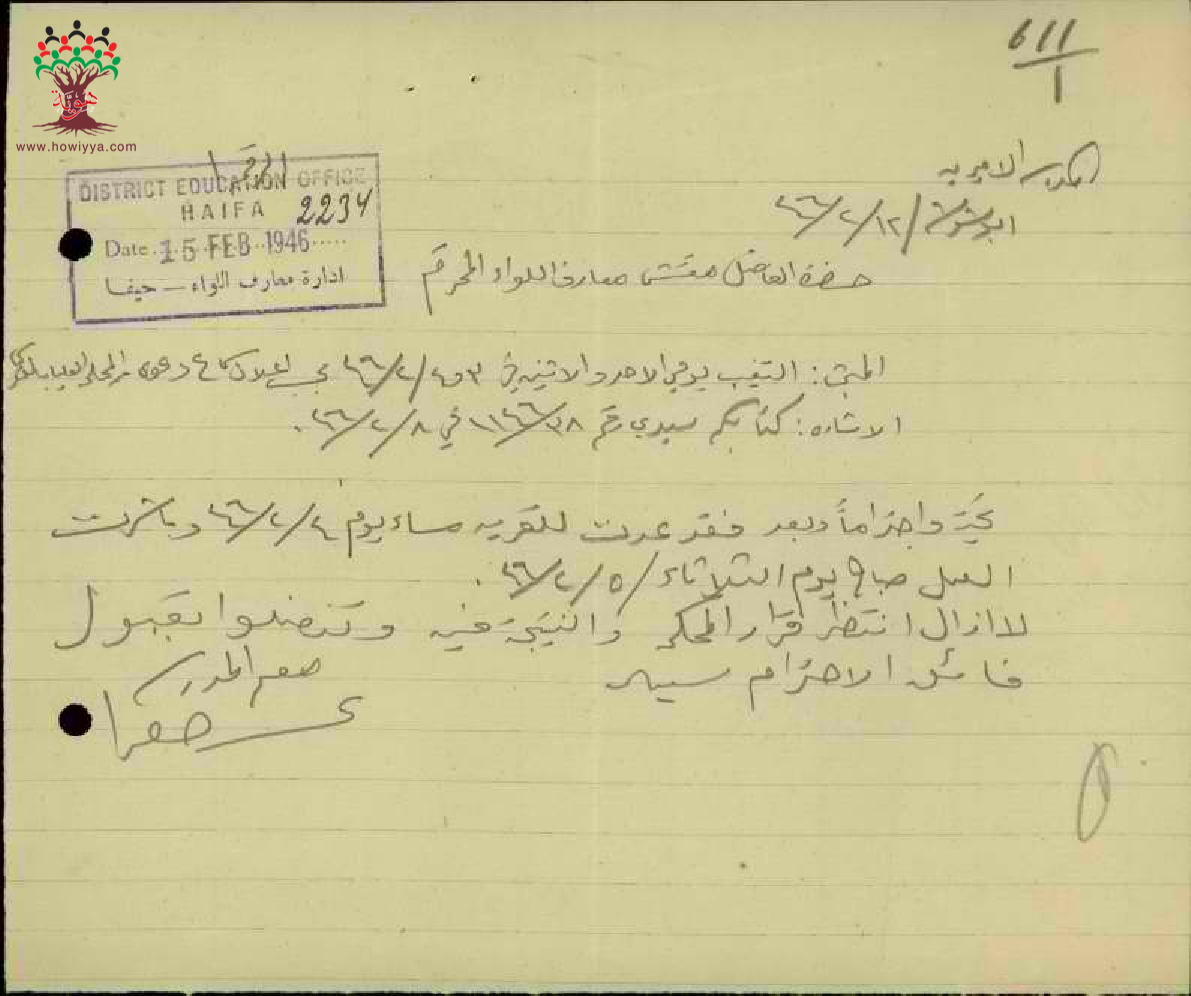 611
1
هوية
www.howiyya.com
DISTRICT EDUCATION OFFICE
HAIFA 2234
Date 15 FEB 1946
ادارة معارف اللواء – حيفا
المدرسة الاميريه
ابوشوشة / ١٢/٢/٤٦
حضرة الفاضل مفتش معارف اللواء المحترم
المبحث: التغيب يومي الاحد والاثنين في ٣ و٤/٢/٤٦
الاشاره: كتابكم سيدي رقم في ٨/٢/٤٦.
تحية واحتراماً وبعد فقد عدت للقريه مساء يوم ٤/٢/٤٦ وباشرت
العمل صباح يوم الثلاثاء / ٥/٢/٤٦.
لا ازال انتظر قرار المحكمه والنتيجة فيه وتفضلوا بقبول
فائق الاحترام سيدي
معلم المدرسة